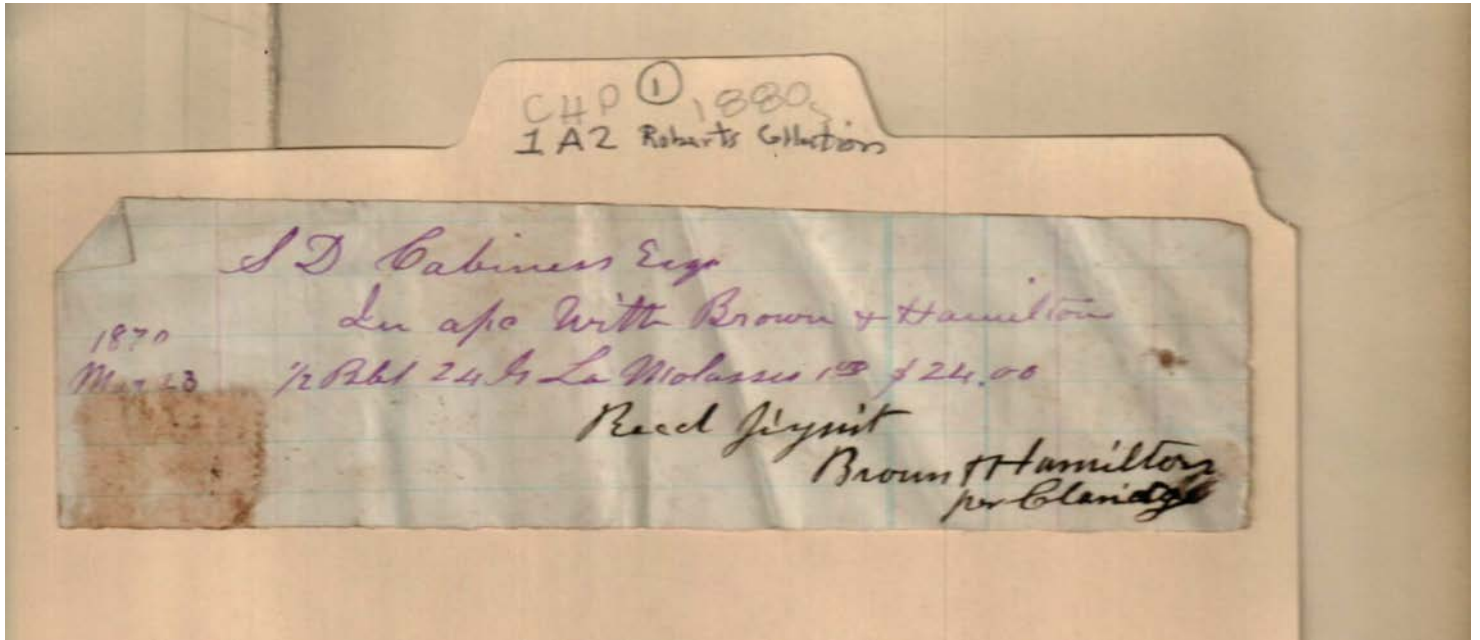 CHP ① 1880s
1A2 Roberts Collection
S D Cabiness Esqr
In a/c With Brown & Hamilton
1870
Mar 23 1/2 Bbl 24 G La Molasses 1.00 $24.00
Recd
Brown & Hamilton
per Claridge